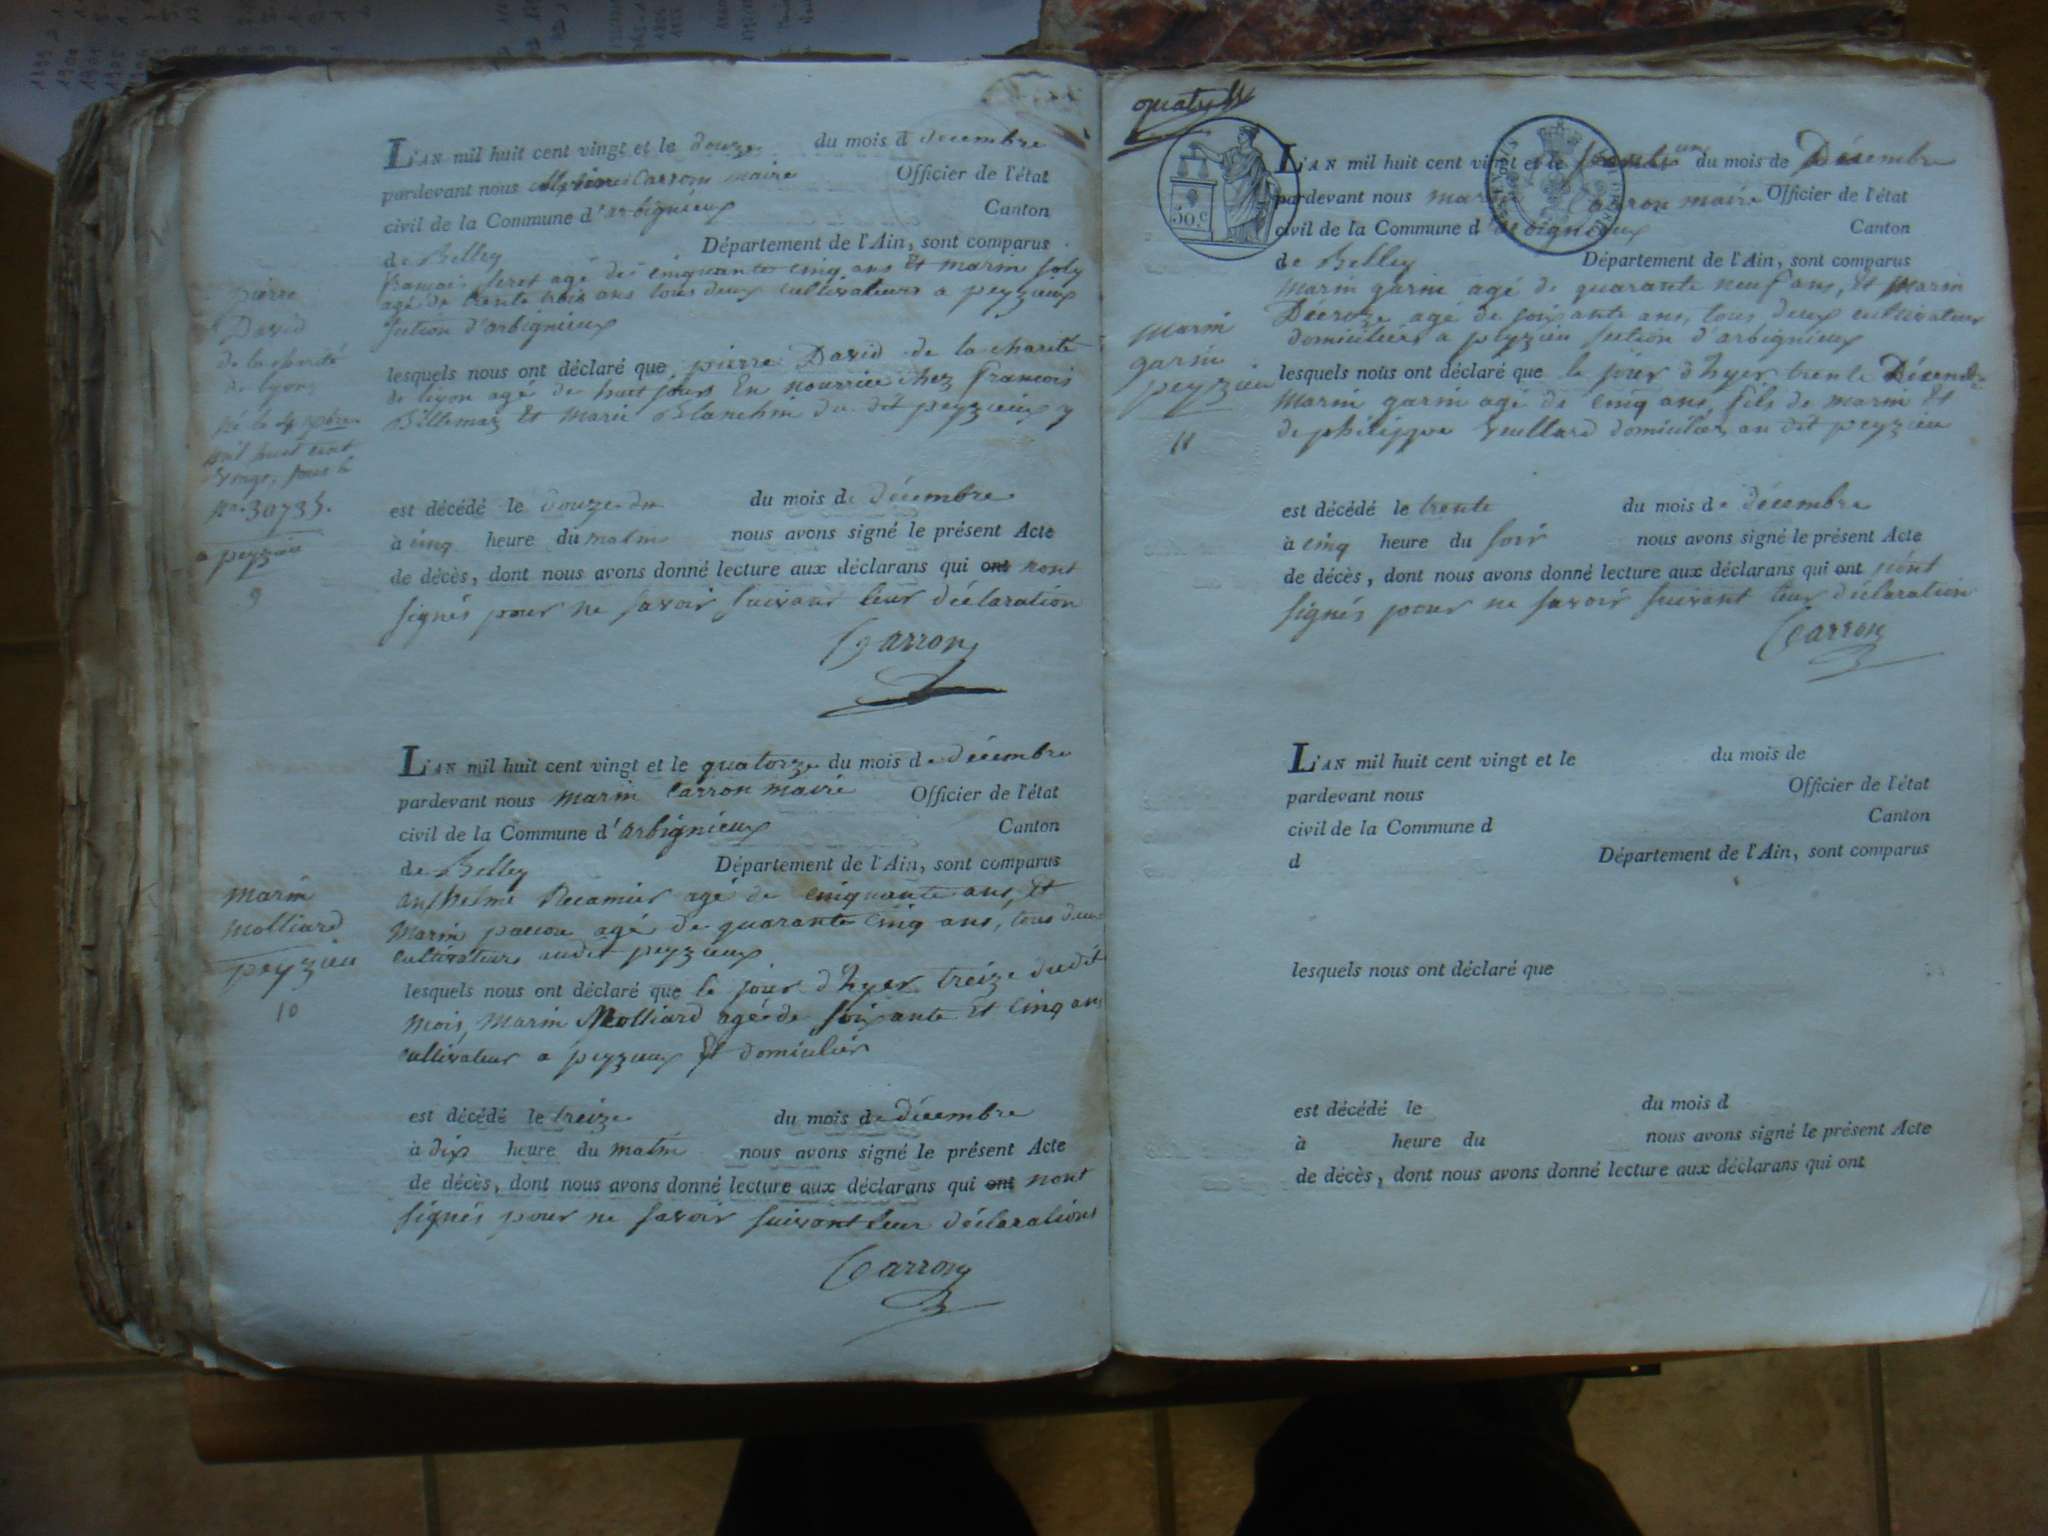 L'AN mil huit cent vingt et le douze du mois d décembre
pardevant nous Marin Carron maire Officier de l'état
civil de la Commune d'arbignieux Canton
de Belley Département de l'Ain, sont comparus
françois agé de cinquante cinq ans Et marin joly
agé de trente trois ans tous deux cultivateurs a peyzieux
section d'arbignieux
pierre
David
de la charité
de lyon
né le 4 xbre
mil huit cent
vingt, sous le
no. 30735.
a peyzieu
9
lesquels nous ont déclaré que pierre David de la charité
de lyon agé de huit jours En nourrice chez françois
Billemaz Et Marie Blanchin du dit peyzieux
est décédé le douze du du mois de décembre
à cinq heure du matin nous avons signé le présent Acte
de décès, dont nous avons donné lecture aux déclarans qui ont nont
signés pour ne savoir suivant leur déclaration
Carron
L'AN mil huit cent vingt et le quatorze du mois de décembre
pardevant nous marin Carron maire Officier de l'état
civil de la Commune d'arbignieux Canton
de Belley Département de l'Ain, sont comparus
anthelme Recamier agé de cinquante ans, Et
Marin agé de quarante cinq ans, tous deux
cultivateurs audit peyzieux
marin
Molliard
peyzieu
10
lesquels nous ont déclaré que le jour d'hyer treize dudit
mois, Marin Molliard agé de soixante Et cinq ans
cultivateur a peyzieux Et domicilié
est décédé le treize du mois de décembre
à dix heure du matin nous avons signé le présent Acte
de décès, dont nous avons donné lecture aux déclarans qui ont nont
signés pour ne savoir suivant leur déclarations
Carron
50 c
L'AN mil huit cent vingt et le trente un du mois de Décembre
pardevant nous marin Carron maire Officier de l'état
civil de la Commune d'arbignieux Canton
de Belley Département de l'Ain, sont comparus
marin garin agé de quarante neuf ans, Et Marin
Décroze agé de soixante ans, tous deux cultivateur
domiciliés a peyzieu section d'arbignieux
marin
garin
peyzieu
11
lesquels nous ont déclaré que le jour d'hyer trente Décembre
Marin garin agé de cinq ans, fils de marin Et
de philippa Vuillard domiciliés au dit peyzieu
est décédé le trente du mois de décembre
à cinq heure du soir nous avons signé le présent Acte
de décès, dont nous avons donné lecture aux déclarans qui ont nont
signés pour ne savoir suivant leur déclaration
Carron
L'AN mil huit cent vingt et le du mois de
pardevant nous Officier de l'état
civil de la Commune d Canton
d Département de l'Ain, sont comparus
lesquels nous ont déclaré que
est décédé le du mois d
à heure du nous avons signé le présent Acte
de décès, dont nous avons donné lecture aux déclarans qui ont